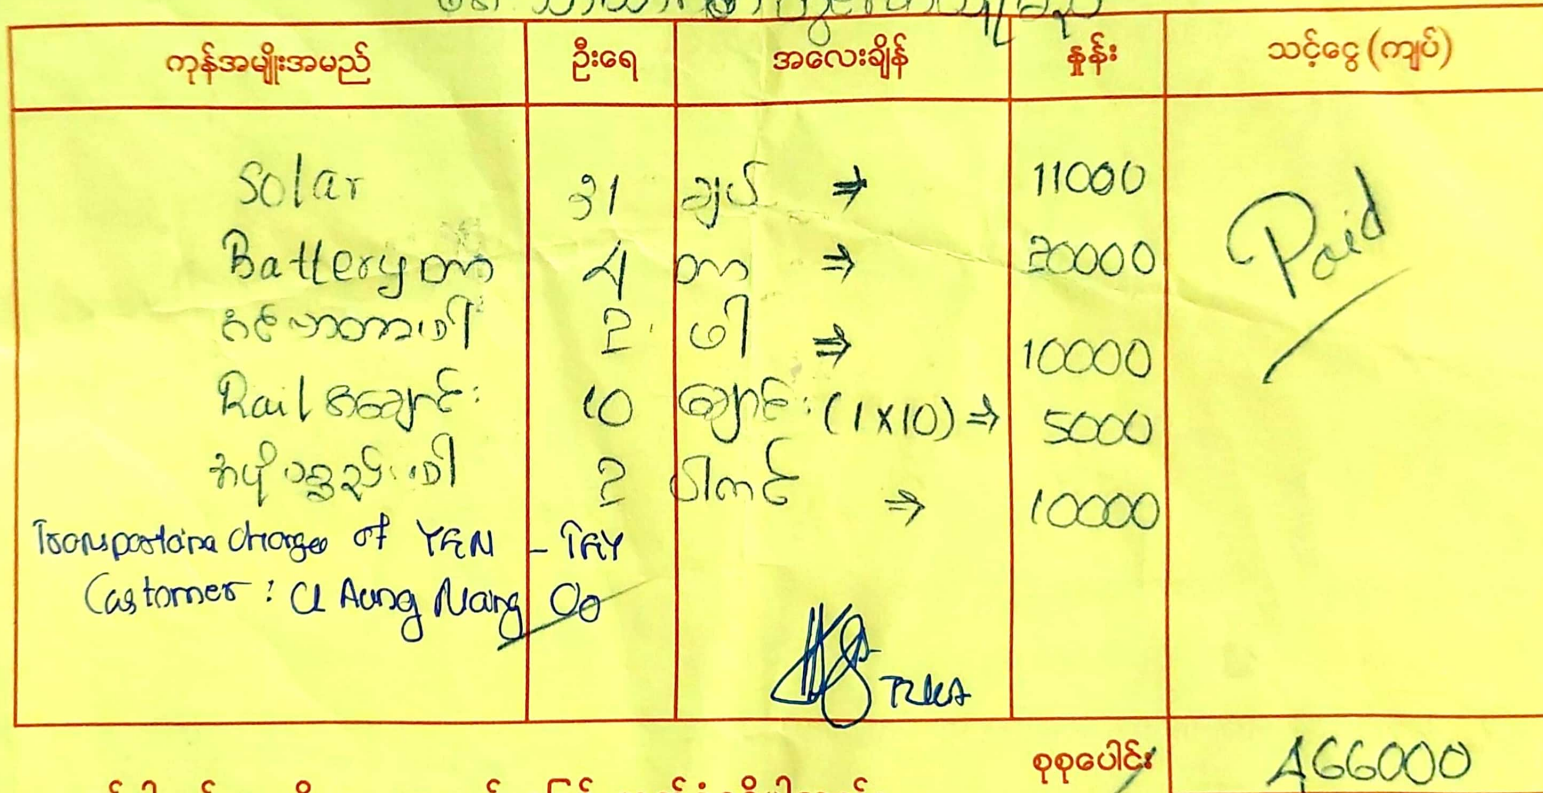 ကုန်အမျိုးအမည် ဦးရေ အလေးချိန် နှုန်း သင့်ငွေ (ကျပ်)
Solar 31 ချပ် ⇒ 11000
Battery တာ 4 တာ ⇒ 20000
2 ဖါ ⇒ 10000
Rail အချောင်း 10 ချောင်း (1×10) ⇒ 5000
အပိုပစ္စည်း ဖါ 2 ပါကင် ⇒ 10000
Paid
charges of YGN - TGY
Customer : U Aung Naing Oo
စုစုပေါင်း 466000